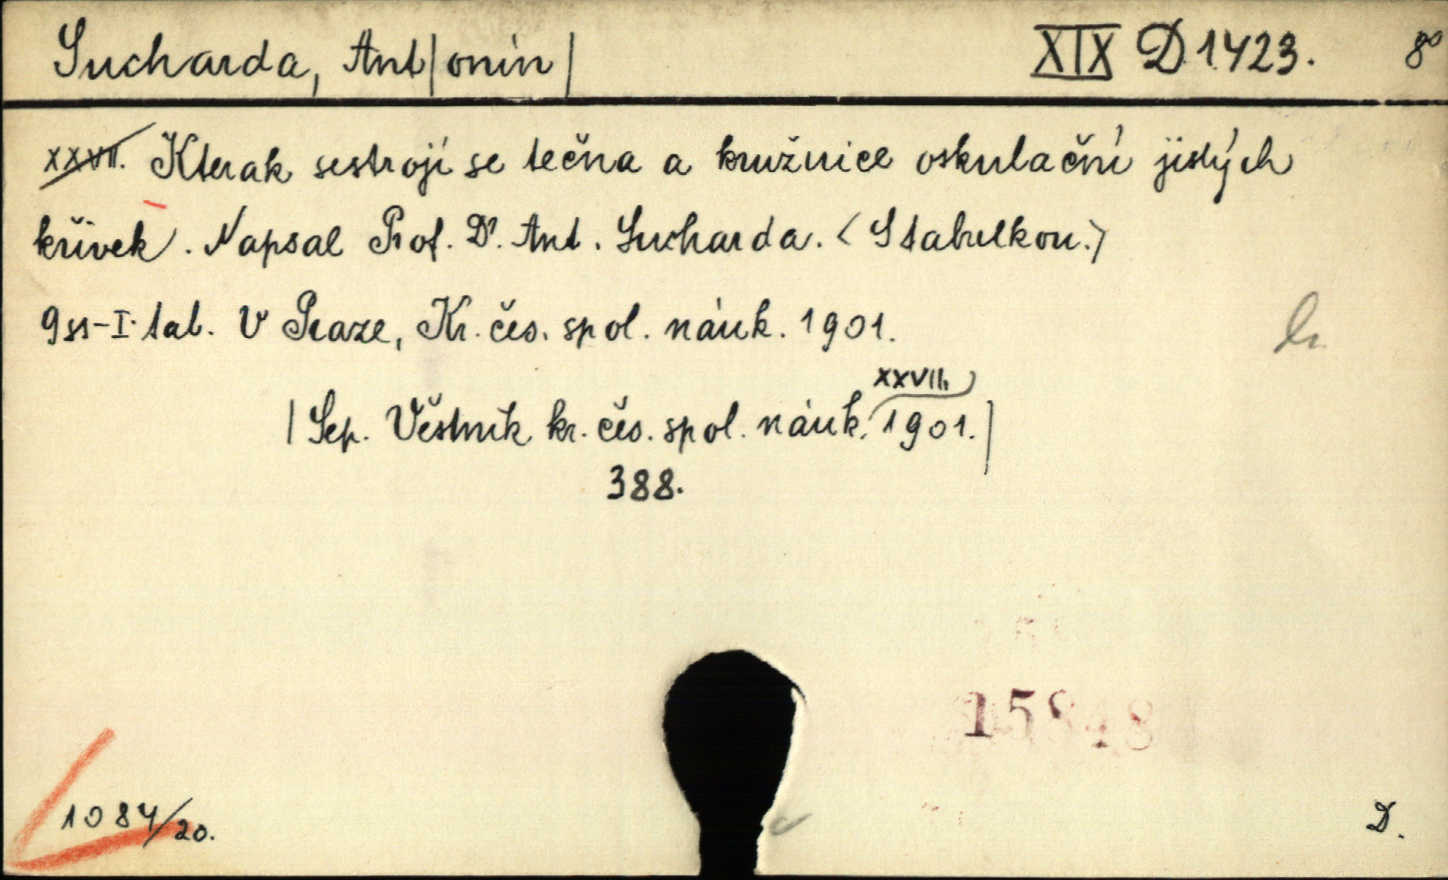 Sucharda, Ant|onín| XIX D 1423. 8°
XXVII. Kterak sestrojí se tečna a kružnice oskulační jistých
křivek. Napsal Prof. Dr. Ant. Sucharda. <S tabulkou.>
9 ss - I. tab. V Praze, Kr. čes. spol. náuk. 1901.
XXVII.
|Sep. Věstník kr. čes. spol. náuk. 1901.|
388.
15848
1084/20.
D.